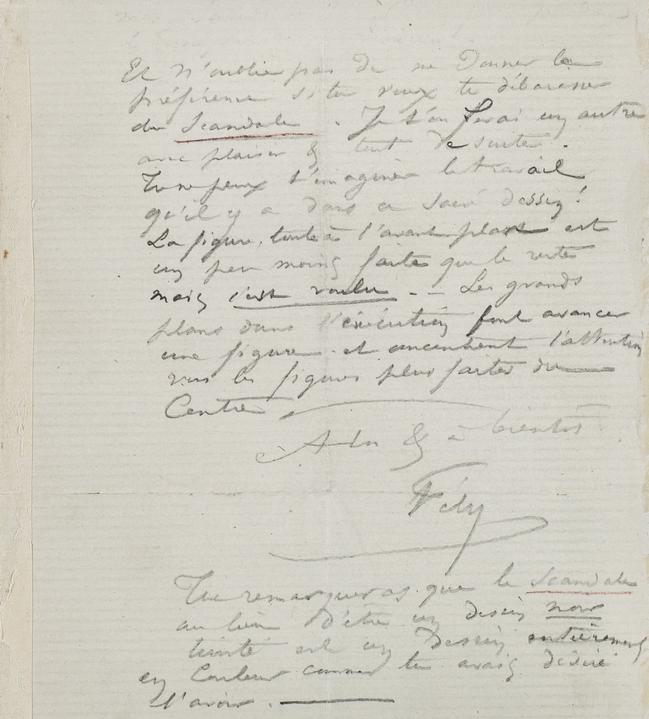 Et n'oublie pas de me donner la
préférence si tu veux te débarasser
du Scandale. Je t'en ferai un autre
avec plaisir & tout de suite.
Tu ne peux t'imaginer le travail
qu'il y a dans ce sacré dessin!
La figure, toute à l'avant plan est
un peu moins faite que le reste
mais c'est voulu. — Les grands
plans dans l'exécution font avancer
une figure et concentrent l'attention
vers les figures plus faites du
Centre
& à bientôt
Fély
Tu remarqueras que le Scandale
au lieu d'être un dessin noir
teinté est un dessin entièrement
en couleur comme tu avais désiré
l'avoir. —